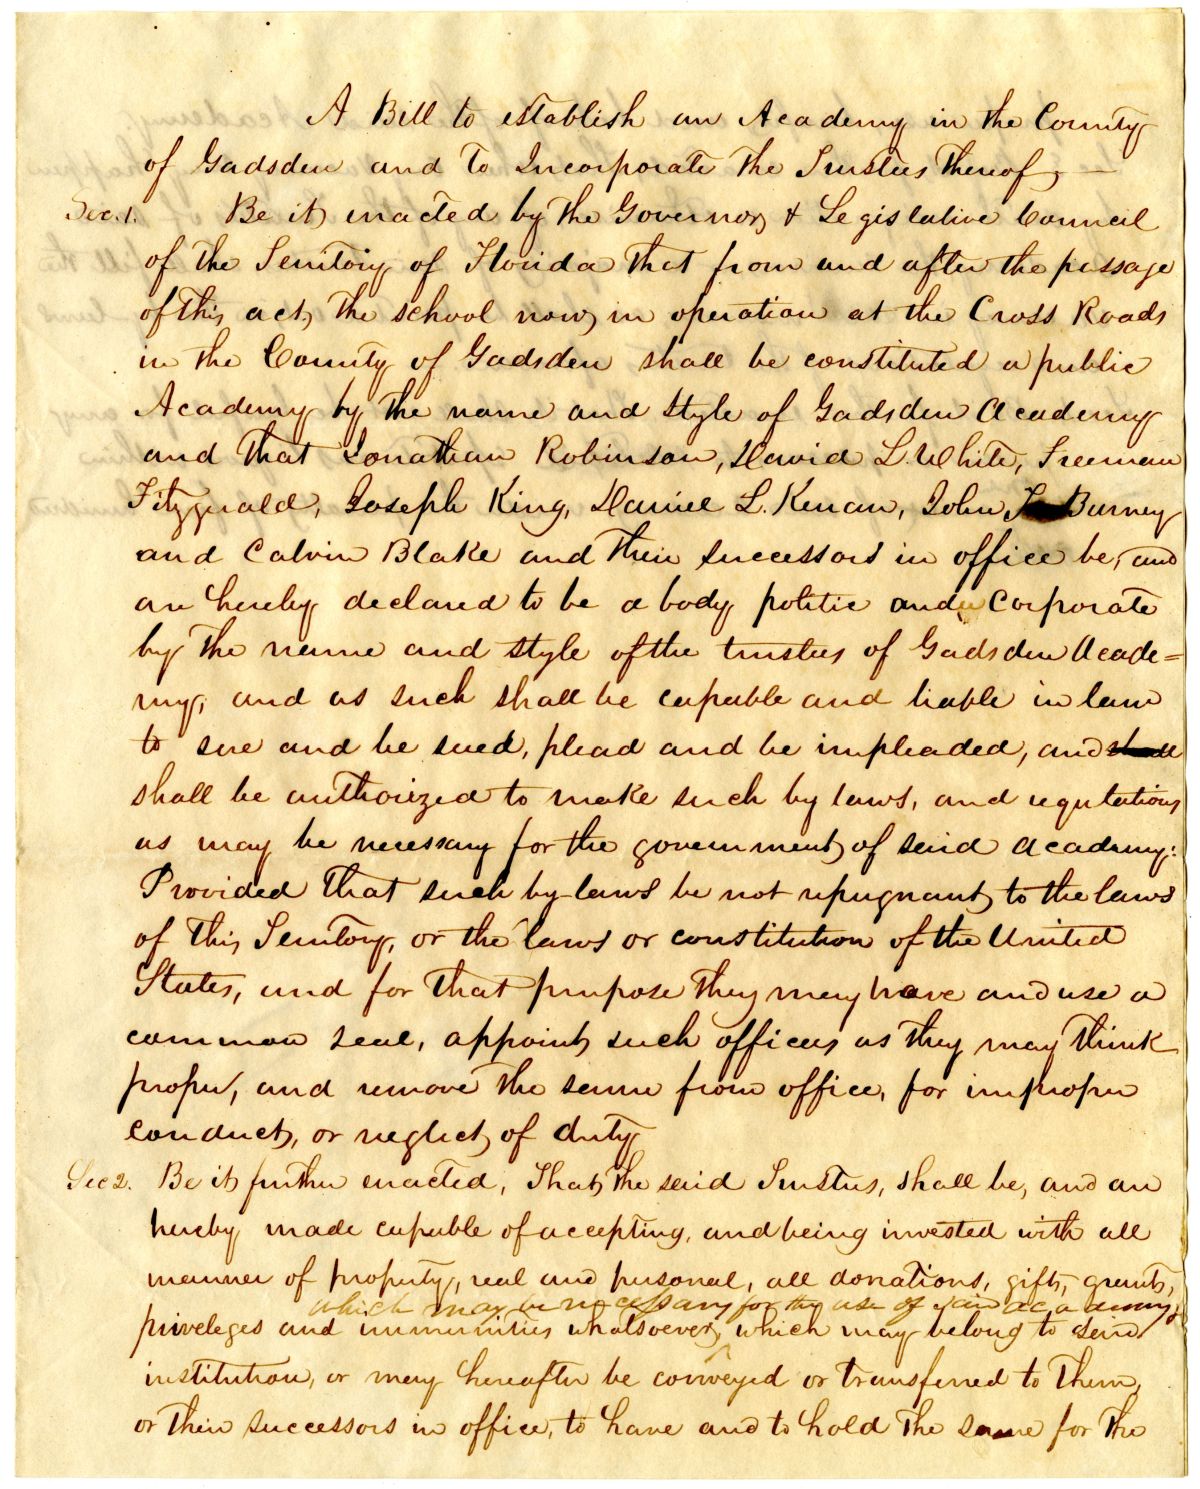 A Bill to establish an Academy in the County
of Gadsden and To Incorporate the Trustees thereof, —
Sec. 1. Be it enacted by the Governor, & Legislative Council
of the Territory of Florida that from and after the passage
of this act, the school now, in operation at the Cross Roads
in the County of Gadsden shall be constituted a public
Academy by the name and style of Gadsden Academy
and that Jonathan Robinson, David L. White, Freeman
Fitzgerald, Joseph King, Daniel L. Kenan, John Burney
and Calvin Blake and their successors in office be, and
are hereby declared to be a body politic and corporate
by the name and style of the trustees of Gadsden Acade=
my, and as such shall be capable and liable in law
to sue and be sued, plead and be impleaded, and shall
shall be authorized to make such by laws, and regulations
as may be necessary for the government, of said academy:
Provided that such by-laws be not repugnant, to the laws
of this Territory, or the laws or constitution of the United
States, and for that purpose they may have and use a
common seal, appoint, such officers as they may think
proper, and remove the same from office, for improper
conduct, or neglect, of duty
Sec 2. Be it further enacted, That, the said Trustees, shall be, and are
hereby made capable of accepting, and being invested with all
manner of property, real and personal, all donations, gifts, grants,
which may be necessary for the use of said academy,
priveleges and immunities whatsoever, which may belong to said
institution, or may hereafter be conveyed or transferred to them,
or their successors in office, to have and to hold the same for the